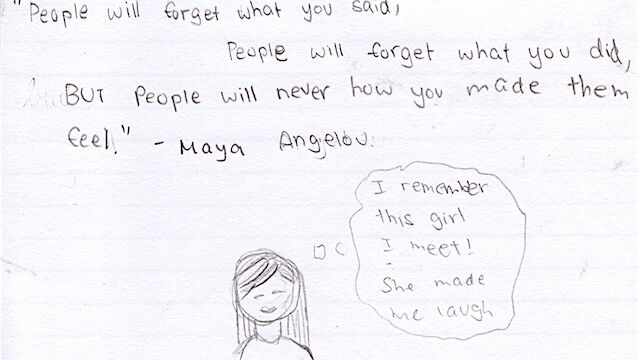 "People will forget what you said,
People will forget what you did,
BUT People will never how you made them
feel." - Maya Angelou.
I remember
this girl
I meet!
She made
me laugh